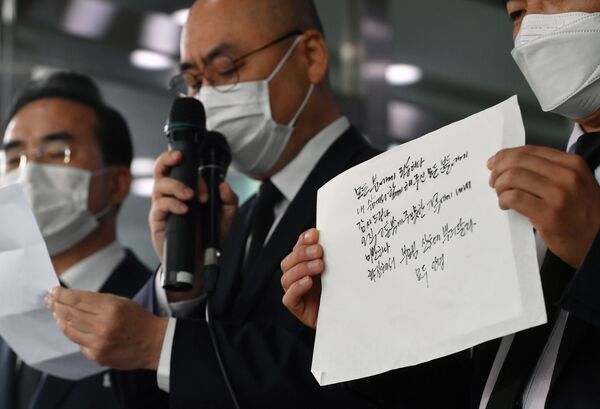 모든 분에게 죄송하다
내 삶에서 함께 해주신 모든 분에게
감사드린다
오직 고통밖에 주지 못한 가족에게 내내
미안하다
화장해서 부모님 산소에 뿌려달라
모두 안녕